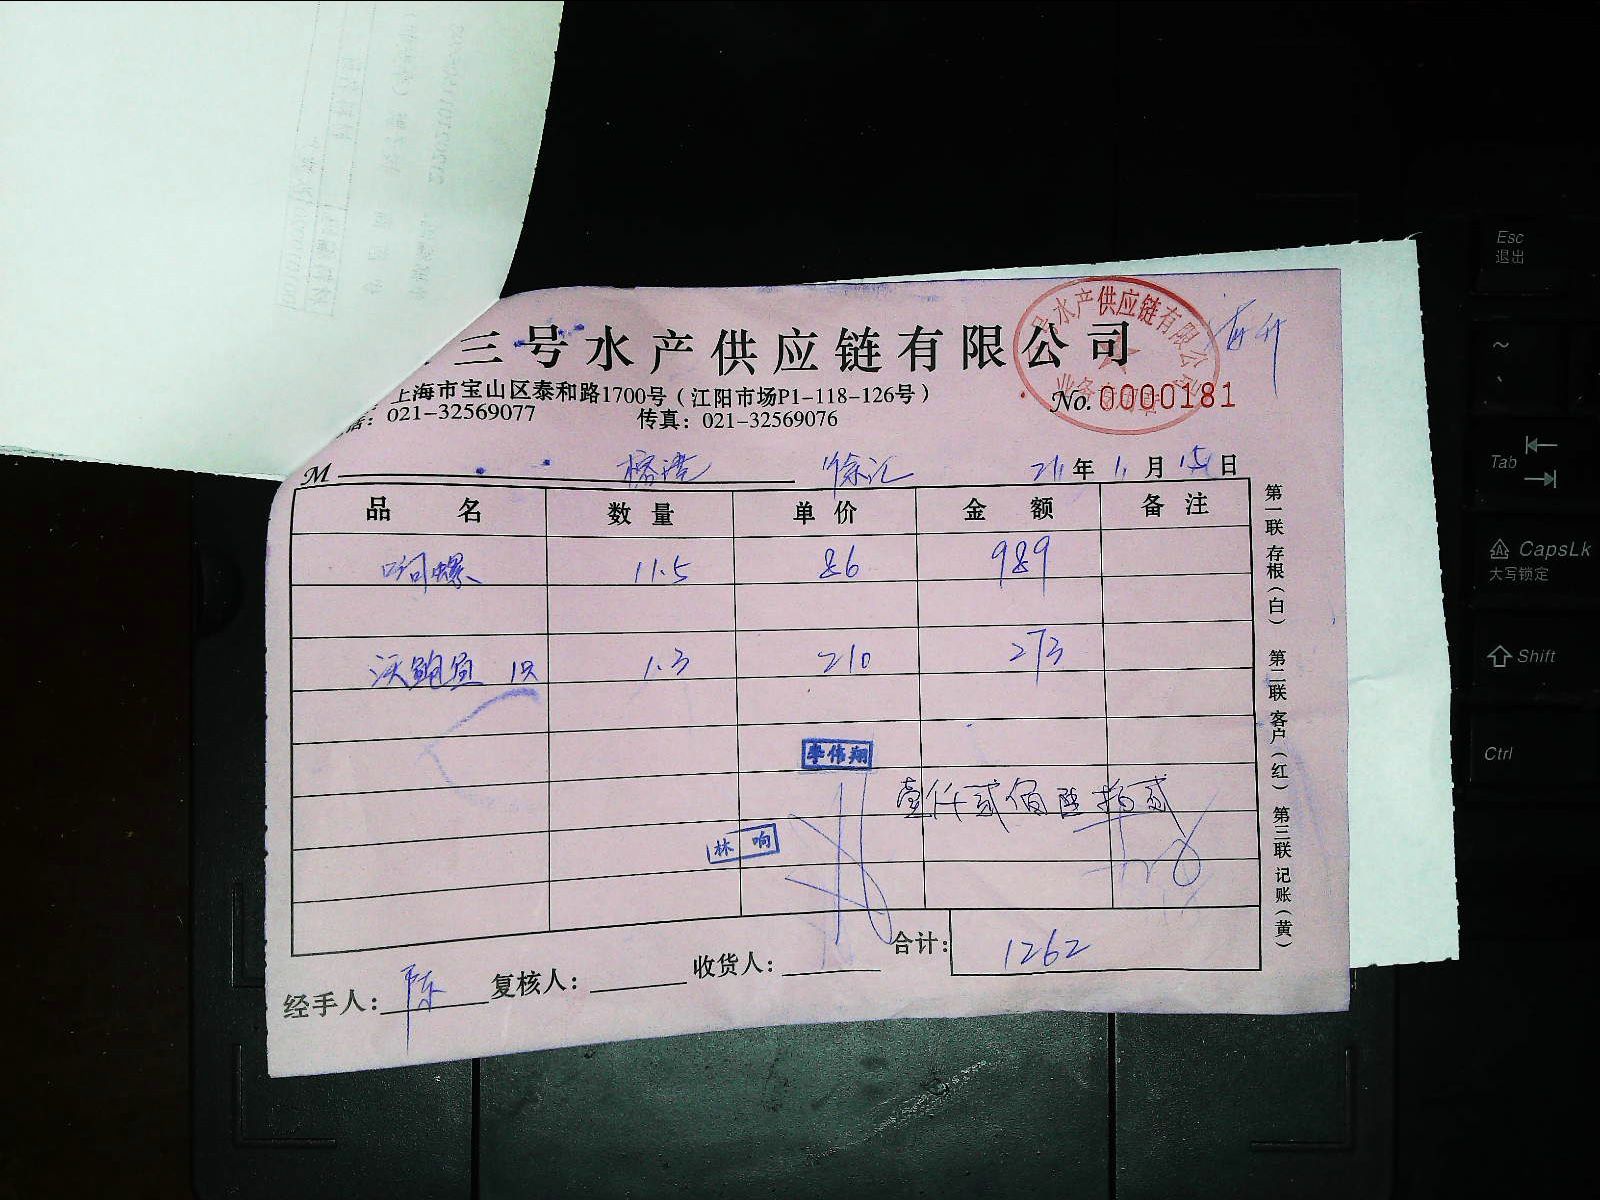 三号水产供应链有限公司
上海市宝山区泰和路1700号（江阳市场P1-118-126号）
021-32569077 传真：021-32569076
号水产供应链有限公
业务
No. 0000181
M 榕港 徐汇 21年1月15日
品名 数量 单价 金额 备注
响螺 11.5 86 989
沃鲍鱼 1只 1.3 210 273
李伟翔
壹仟贰佰陆拾贰
林响
合计：1262
经手人：陈 复核人： 收货人：
第一联 存根（白） 第二联 客户（红） 第三联 记账（黄）
Esc
退出
~
Tab
CapsLk
大写锁定
Shift
Ctrl